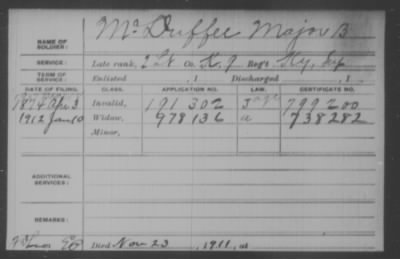 NAME OF SOLDIER: McDuffee Major B
SERVICE: Late rank, 2 Lt Co. K. 9 Reg't Ky. Inf
TERM OF SERVICE: Enlisted , 1 Discharged , 1 .
DATE OF FILING. CLASS. APPLICATION NO. LAW. CERTIFICATE NO.
1874 Apr 3 Invalid, 191 302 799 200
1912 Jan 10 Widow, 978 136 a 738282
Minor,
ADDITIONAL SERVICES:
REMARKS:
Died Nov 23 , 1911, at